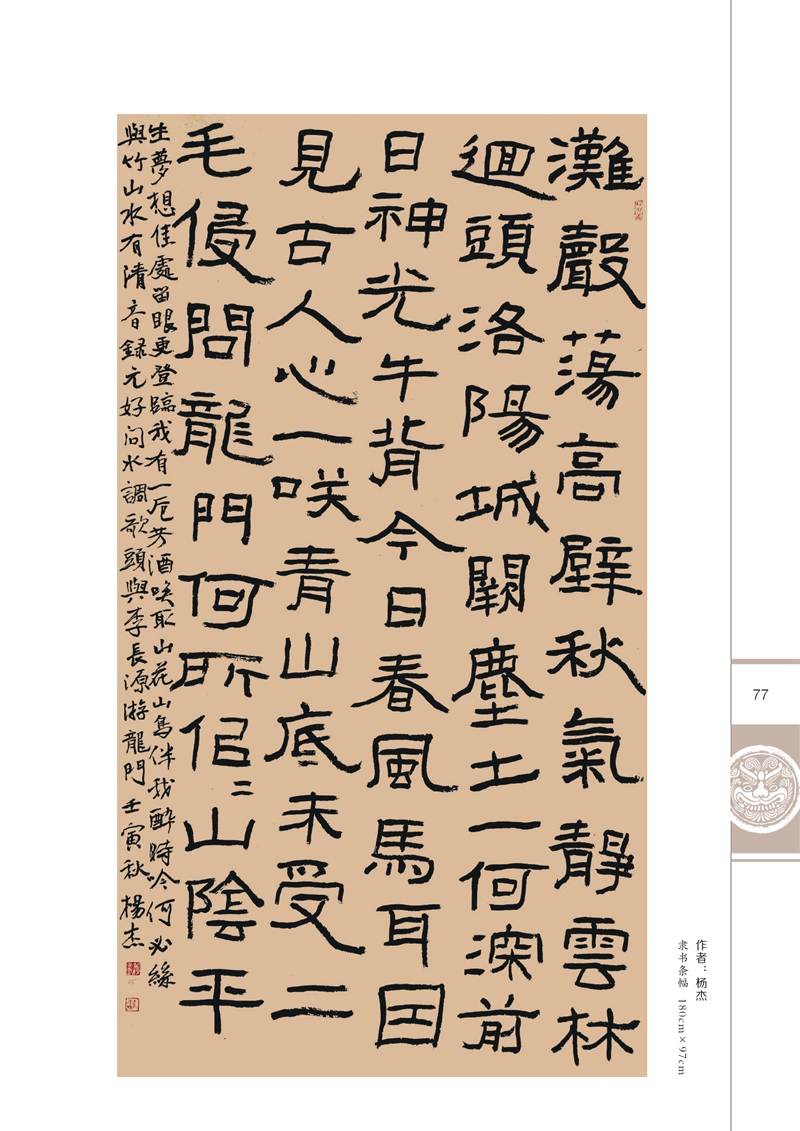 灘聲蕩高壁秋氣靜雲林
迴頭洛陽城闕塵土一何深前
日神光牛背今日春風馬耳因
見古人心一咲青山底未受二
毛侵問龍門何所佀〻山陰平
生夢想佳處留眼更登臨我有一卮芳酒咲取山花山鳥伴我醉時吟何必絲
與竹山水有清音録元好问水調歌頭與李長源游龍門 壬寅秋 楊杰
77
作者：杨杰
隶书条幅 180cm×97cm